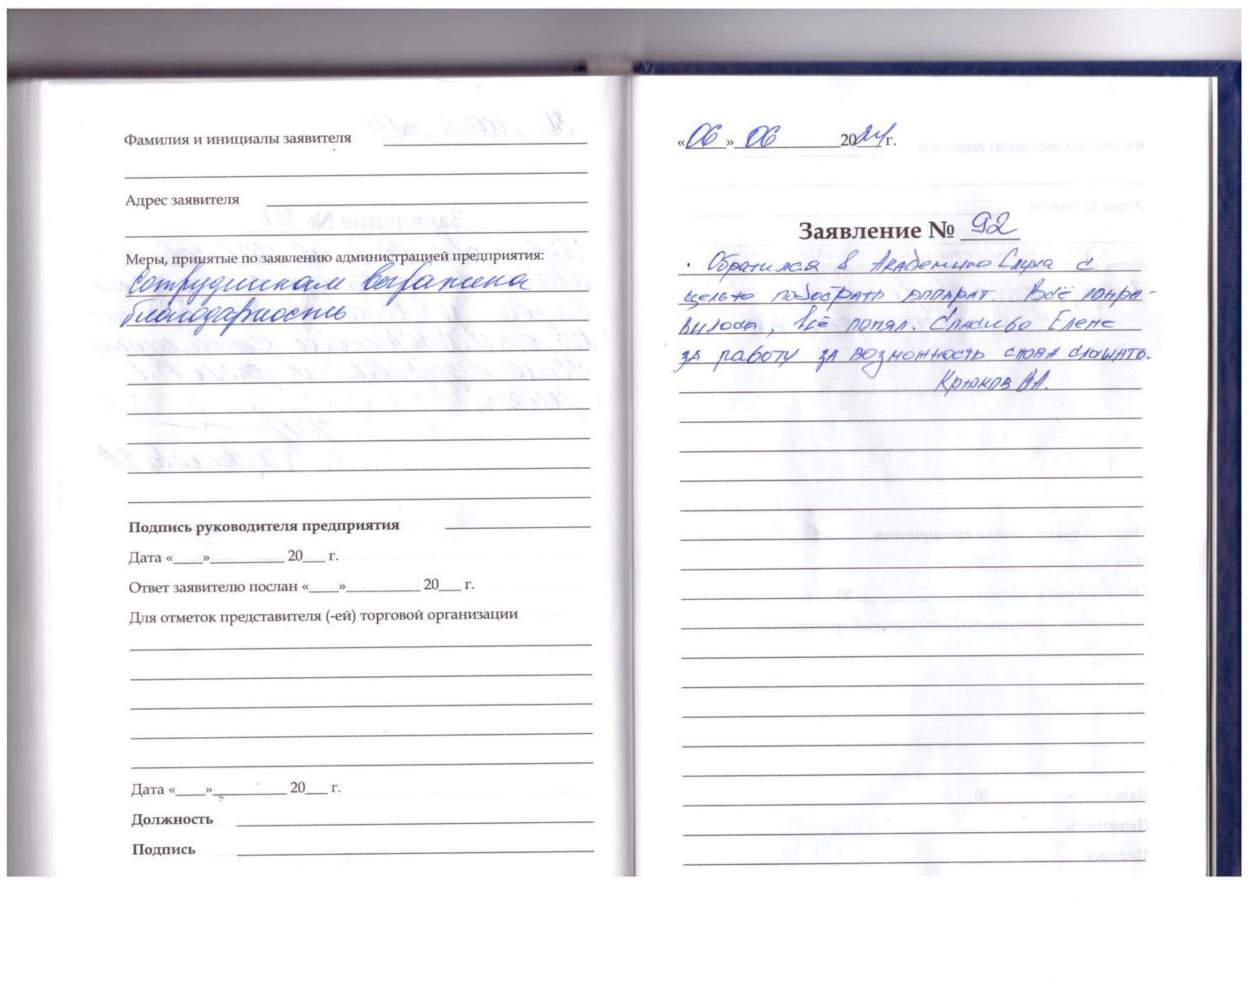 Фамилия и инициалы заявителя
Адрес заявителя
Меры, принятые по заявлению администрацией предприятия:
Сотрудникам выражена
благодарность
Подпись руководителя предприятия
Дата «____»__________ 20___ г.
Ответ заявителю послан «____»__________ 20___ г.
Для отметок представителя (-ей) торговой организации
Дата «____»__________ 20___ г.
Должность
Подпись
«06» 06 2024 г.
Заявление № 92
Обратился в Академию Слуха с
целью подобрать аппарат. Всё понра-
вилось, всё понял. Спасибо Елене
за работу за возможность снова слышать.
Крюков В.А.